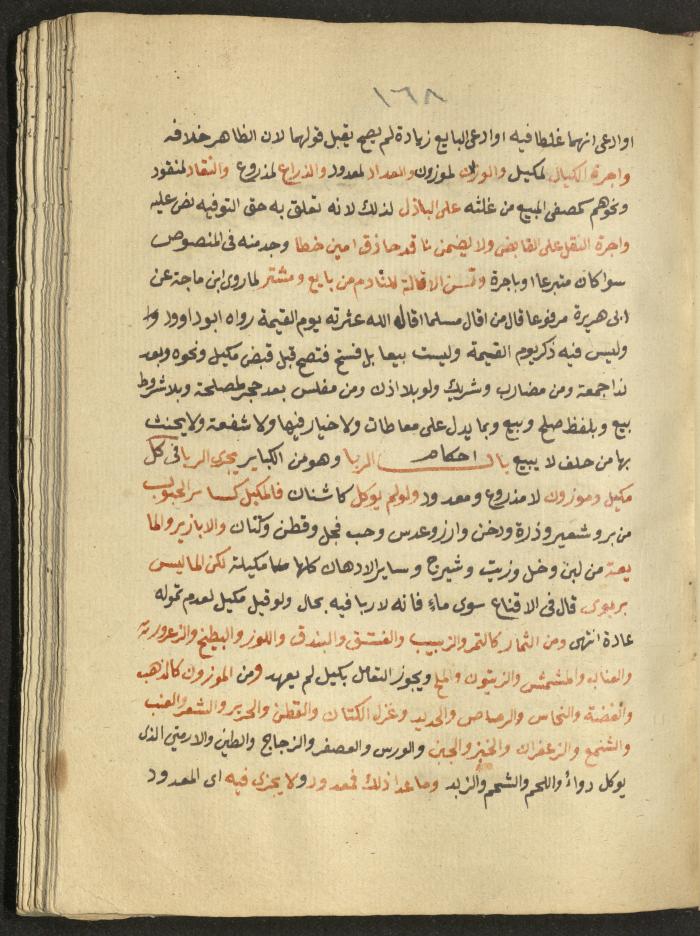 ١٦٨
او ادعى انهما غلطا فيه او ادعى البايع زيادة لم يصح يقبل قولهما لان الظاهر خلافه
واجرة الكيال لمكيل والوزان لموزون والعداد لمعدود والذراع لمذروع والنقاد لمنقود
ونحوهم كمصفى المبيع من غلثه على الباذل لذلك لانه تعلق به حق التوفيه نص عليه
واجرة النقل على القابض ولا يضمن ناقد حاذق امين خطا وجد منه في المنصوص
سوا كان متبرعا او باجرة وتسن الاقالة لنادم من بايع ومشتر لما روى ابن ماجة عن
ابى هريرة مرفوعا قال من اقال مسلما اقال الله عثرته يوم القيمة رواه ابو داوود
وليس فيه ذكر يوم القيمة وليست بيعا بل فسخ فتصح قبل قبض مكيل ونحوه وبعد
ندا جمعة ومن مضارب وشريك ولو بلا اذن ومن مفلس بعد حجر لمصلحة وبلا شروط
بيع وبلفظ صلح وبيع وبما يدل على معاطات ولا خيار فيها ولا شفعة ولا يحنث
بها من حلف لا يبيع باب احكام الربا وهو من الكباير يجرى الربا فى كل
مكيل وموزون لا مذروع ومعدود ولو لم يوكل كاشنان فالمكيل كساير الحبوب
من بر وشعير وذرة ودخن وارز وعدس وحب فجل وقطن وكتان والابازير والما
يعة من لبن وخل وزيت وشيرج وساير الادهان كلها مكيلة لكن الما ليس
بربوى قال فى الاقناع سوى ماء فانه لا ربا فيه بحال ولو قيل مكيل لعدم تموله
عادة انتهى ومن الثمار كالتمر والزبيب والفستق والبندق واللوز والبطيخ والزعرور
والعناب والمشمش والزيتون والملح ويجوز التعامل بكيل لم يعهد ومن الموزون كالذهب
والفضة والنحاس والرصاص والحديد وغزل الكتان والقطن والحرير والشعر والعنب
والشمع والزعفران والخبز والجبن والورس والعصفر والزجاج والطين والارمني الذى
يوكل دواءً واللحم والشحم والزبد وما عدا ذلك فمعدود ولا يجرى فيه اى المعدود